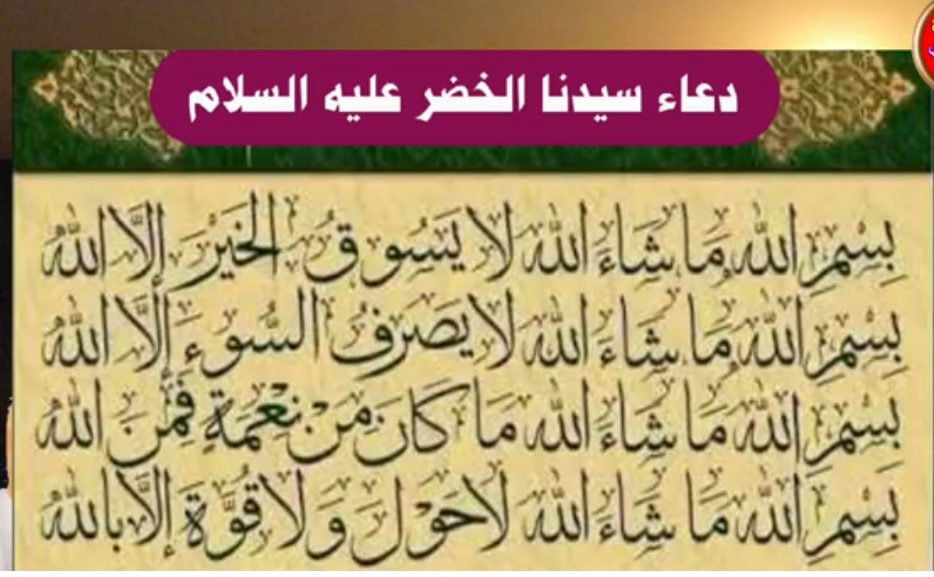 دعاء سيدنا الخضر عليه السلام
بِسْمِ اللهِ مَا شَاءَ اللهُ لَا يَسُوقُ الخَيْرَ إِلَّا اللهُ
بِسْمِ اللهِ مَا شَاءَ اللهُ لَا يَصْرِفُ السُّوءَ إِلَّا اللهُ
بِسْمِ اللهِ مَا شَاءَ اللهُ مَا كَانَ مِنْ نِعْمَةٍ فَمِنَ اللهِ
بِسْمِ اللهِ مَا شَاءَ اللهُ لَا حَوْلَ وَلَا قُوَّةَ إِلَّا بِاللهِ